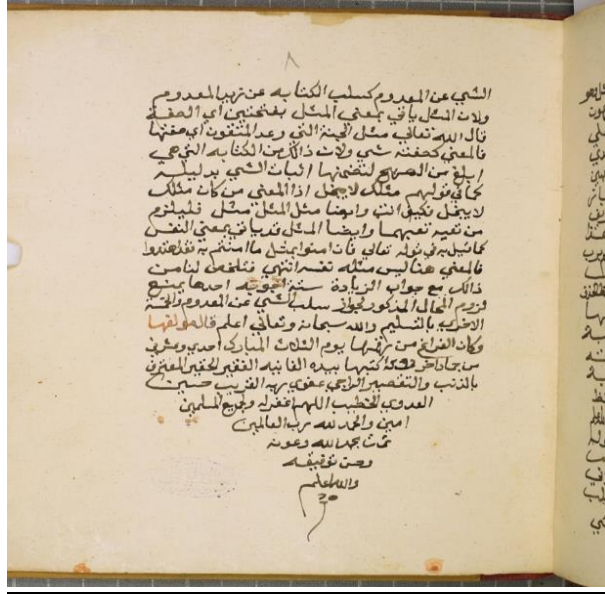 ٨
الشي عن المعدوم كسلب الكتابه عن زيد المعدوم
ولان المثل ياتي بمعني المثل بفتحتين اي الصفة
قال الله تعالي مثل الجنة التي وعد المتقون اي صفتها
فالمعني كصفته شي ولان ذالك من الكنايه التي هي
ابلغ من الصريح لتضمنها اثبات الشي بدليله
كما في قولهم مثلك لا يبخل اذ المعني من كان مثلك
لا يبخل فكيف انت وايضا مثل المثل مثل فيلزم
من نفيه نفيهما وايضا المثل قد ياتي بمعني النفس
كما قيل به في قوله تعالي فان امنوا بمثل ما امنتم به فقد اهتدوا
فالمعني هنا ليس مثله نفسه انتهي فتلخص لنا من
ذالك مع جواب الزيادة ستة اجوبة احدها يمنع
لزوم المحال المذكور لجواز سلب الشي عن المعدوم والخمسة
الاخري بالتسليم والله سبحانه وتعالي اعلم قاله مولفها
وكان الفراغ من يوم الثلاث المبارك احدي وعشرين
من كتبها بيده الفانيه الفقير الحقير المعترف
بالذنب والتقصير الراجي عفو ربه القريب حسين
العدوي الخطيب اللهم اغفر له ولجميع المسلمين
امين والحمد لله رب العالمين
تمت بحمد الله وعونه
وحسن توفيقه
والله اعلم